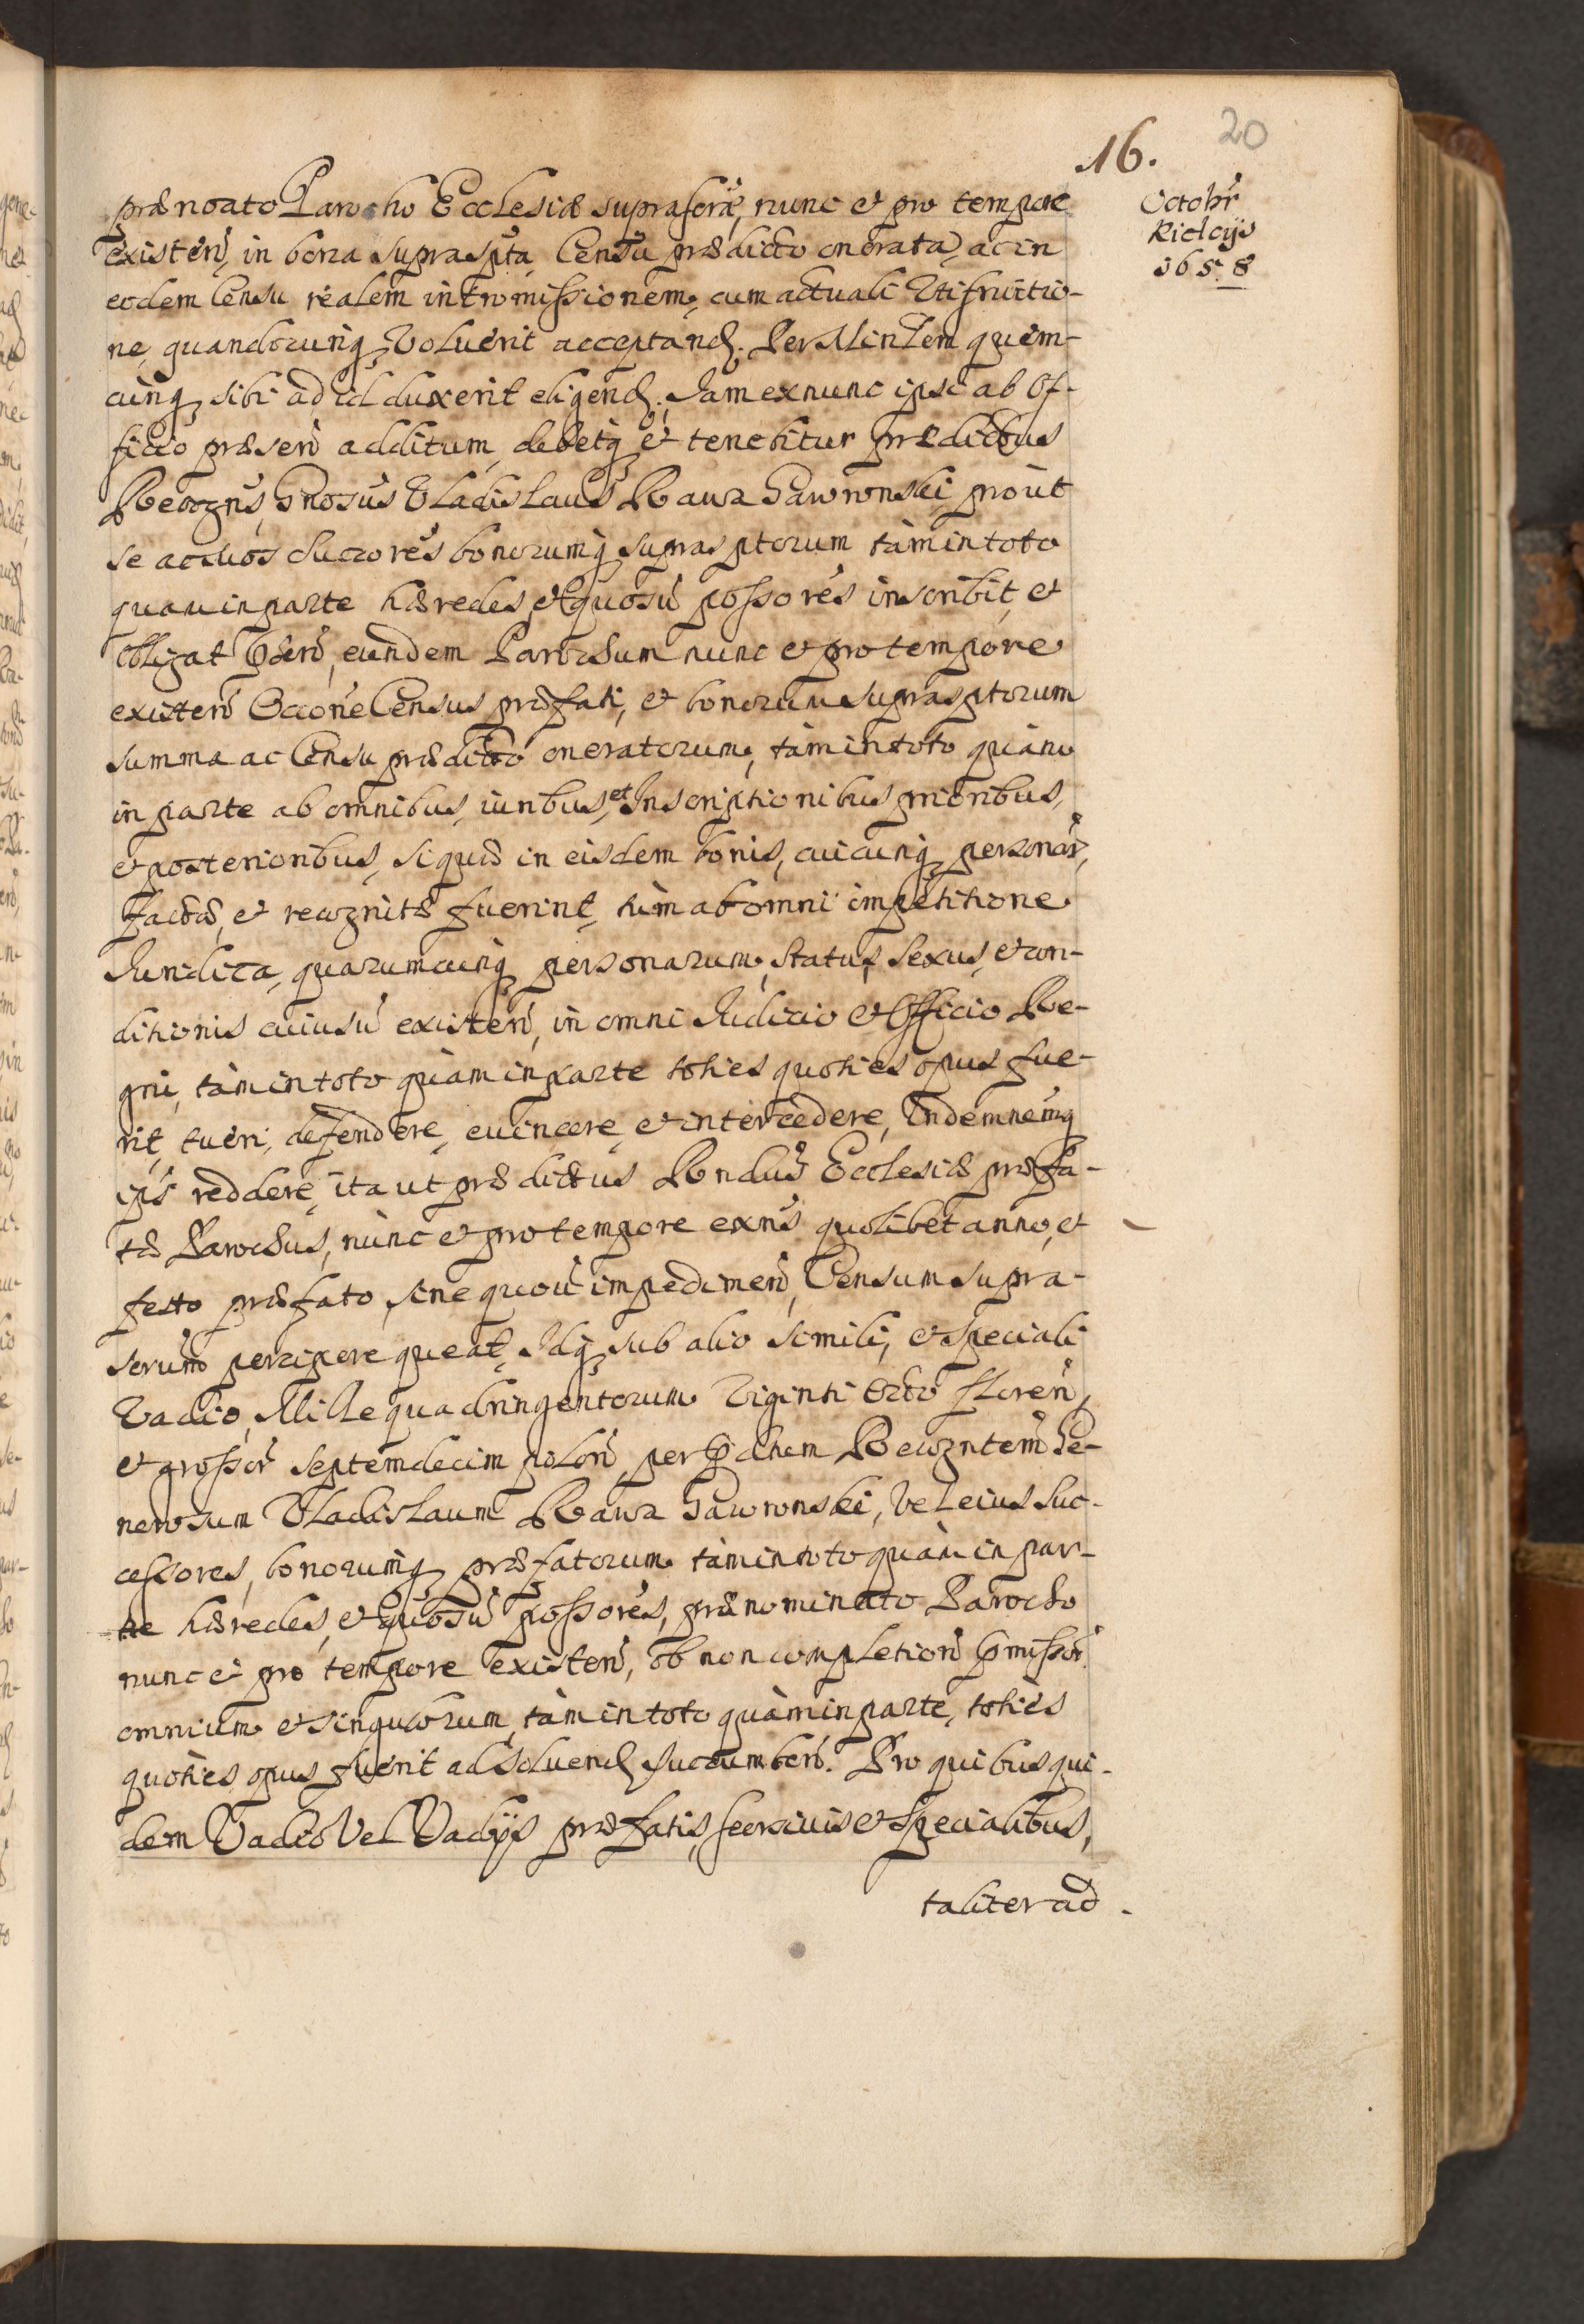 16.
20
Octobr̃
Kielcijs
1658
prænoato Parocho Ecclesiæ suprascrӕ, nunc et pro tempore
existeñ, in bona supraspta Censu prædicto onerata, ac in
eodem Censu realem intromissionem, cum actuali Vtifruitio-
ne, quandocunq, voluerit acceptand. Per Mintem quem-
cunq, sibi ad id duxerit eligend. Jam ex nunc ipsi ab Of-
ficio præsen additum, debetq et tenebitur prædictus
Recogns, Gnosus Vladislaus Rawa Gawronski, prout
se ac suos succores bonorumq suprasptorum tàm in toto
quam in parte hæredes, et quosu possores inscribit, et
obligat ibidem, eundem Parochum nunc et pro tempore
existeñ Occone Census præfati, et bonorum suprasptorum
summa ac Censu prædicto oneratorum, tàm in toto quàm
in parte ab omnibus, iuribus, et Inscriptionibus prioribus,
et posterioribus, si quæ in eisdem bonis, cuicunq personar,
factæ, et recognitæ fuerint, tùm ab omni impetitione
Juridica, quarumcunq personarum, status, sexus, et con-
ditionis cuiusu existeñ, in omni Judicio et Officio Re-
gni, tàm in toto quàm in parte toties quoties opus fue-
rit, tueri, defendere, euincere, et intercedere, Indemnemq
ips reddere, ita ut prædictus Rndus Ecclesiæ præfa-
tæ Parochus, nunc et pro tempore exns quolibet anno, et
festo præfato, sine quou impedimeñ, Censum supra-
scrum percipere queat, Idq, sub alio simili, et speciali
Vadio, Mille quadringentorum Viginti Octo floreñ,
et grossor septemdecim poloñ, per pdctum Recogntem Ge-
nerosum Vladislaum Rawa Gawronski, vel eius suc-
cessores, bonorumq præfatorum tàm in toto quàm in par-
te hæredes, et quosu possores, prænominato Parocho
nunc et pro tempore existeñ, ob non completioñ pmissor
omnium et singulorum, tàm in toto quàm in parte, toties
quoties opus fuerit ad soluend succumbeñ. Pro quibus qui-
dem Vadio vel Vadijs præfatis, et specialibus,
taliter ad